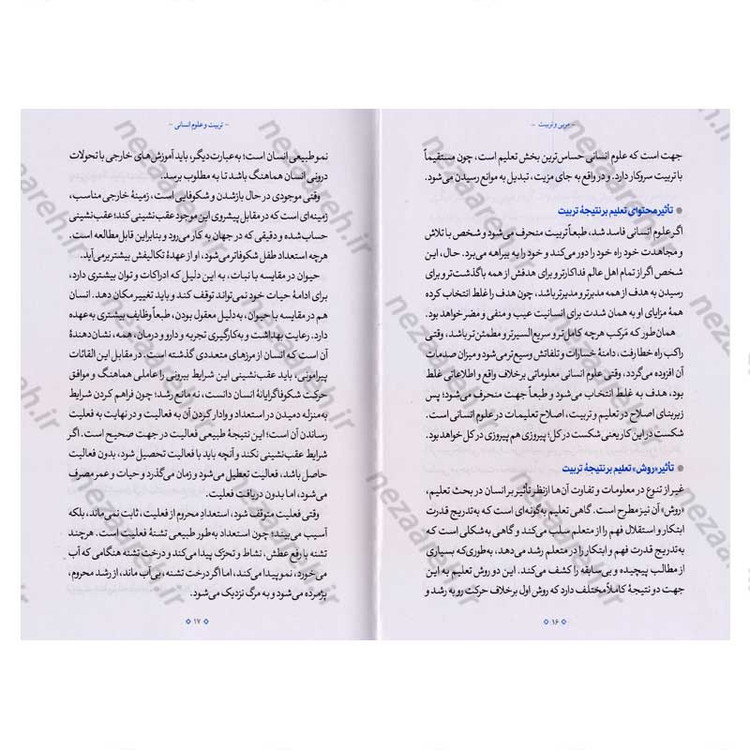 - مربی و تربیت -
جهت است که علوم انسانی حساس‌ترین بخش تعلیم است، چون مستقیماً
با تربیت سروکار دارد. و در واقع به جای مزیت، تبدیل به موانع رسیدن می‌شود.
تأثیر محتوای تعلیم بر نتیجهٔ تربیت
اگر علوم انسانی فاسد شد، طبعاً تربیت منحرف می‌شود و شخص با تلاش
و مجاهدت خود راه خود را دور می‌کند و خود را به بیراهه می‌برد. حال، این
شخص اگر از تمام اهل عالم فداکارتر و برای هدفش از همه باگذشت‌تر و برای
رسیدن به هدف از همه مدبرتر و مدیرتر باشد، چون هدف را غلط انتخاب کرده
همهٔ مزایای او به همان شدت برای انسانیت عیب و منفی و مضر خواهد بود.
همان‌طور که مَرکب هرچه کامل‌تر و سریع‌السیرتر و مطمئن‌تر باشد، وقتی
راکب راه خطا رفت، دامنهٔ خسارات و تلفاتش وسیع‌تر می‌شود و میزان صدمات
آن افزوده می‌گردد، وقتی علوم انسانی معلوماتی برخلاف واقع و اطلاعاتی غلط
بود، هدف به غلط انتخاب می‌شود و طبعاً جهت منحرف می‌شود؛ پس
زیربنای اصلاح در تعلیم و تربیت، اصلاح تعلیمات در علوم انسانی است.
شکست در این کار یعنی شکست در کل؛ پیروزی هم پیروزی در کل خواهد بود.
تأثیر «روش» تعلیم بر نتیجهٔ تربیت
غیر از تنوع در معلومات و تفاوت آن‌ها ازنظر تأثیر بر انسان در بحث تعلیم،
«روش» آن نیز مطرح است. گاهی تعلیم به‌گونه‌ای است که به‌تدریج قدرت
ابتکار و استقلال فهم را از متعلم سلب می‌کند و گاهی به‌شکلی است که
به‌تدریج قدرت فهم و ابتکار را در متعلم رشد می‌دهد، به‌طوری‌که بسیاری
از مطالب پیچیده و بی‌سابقه را کشف می‌کند. این دو روش تعلیم به این
جهت دو نتیجهٔ کاملاً مختلف دارد که روش اول برخلاف حرکت رو به رشد و
۱۶
- تربیت و علوم انسانی -
نمو طبیعی انسان است؛ به‌عبارت دیگر، باید آموزش‌های خارجی با تحولات
درونی انسان هماهنگ باشد تا به مطلوب برسد.
وقتی موجودی در حال بازشدن و شکوفایی است، زمینهٔ خارجی مناسب،
زمینه‌ای است که در مقابل پیشروی این موجود عقب‌نشینی کند؛ عقب‌نشینی
حساب‌شده و دقیقی که در جهان به کار می‌رود و بنابراین قابل مطالعه است.
هرچه استعداد طفل شکوفاتر می‌شود، او از عهدهٔ تکالیفش بیشتر برمی‌آید.
حیوان در مقایسه با نبات، به این دلیل که ادراکات و توان بیشتری دارد،
برای ادامهٔ حیات خود نمی‌تواند توقف کند و باید تغییر مکان دهد. انسان
هم در مقایسه با حیوان، به‌دلیل معقول بودن، طبعاً وظایف بیشتری به‌عهده
دارد. رعایت بهداشت و به‌کارگیری تجربه و دارو و درمان، همه، نشان‌دهندهٔ
آن است که انسان از مرزهای متعددی گذشته است. در مقابل این القائات
پیرامونی، باید عقب‌نشینی این شرایط بیرونی را عاملی هماهنگ و موافق
حرکت شکوفاگرایانهٔ انسان دانست، نه مانع رشد؛ چون فراهم کردن شرایط
به‌منزله دمیدن در استعداد و وادار کردن آن به فعالیت و در نهایت به فعلیت
رساندن آن است؛ این نتیجهٔ طبیعی فعالیت در جهت صحیح است. اگر
شرایط عقب‌نشینی نکند و آنچه باید با فعالیت تحصیل شود، بدون فعالیت
حاصل باشد، فعالیت تعطیل می‌شود و زمان می‌گذرد و حیات و عمر مصرف
می‌شود، اما بدون دریافت فعلیت.
وقتی فعلیت متوقف شود، استعدادِ محروم از فعلیت، ثابت نمی‌ماند، بلکه
آسیب می‌بیند؛ چون استعداد به‌طور طبیعی تشنهٔ فعلیت است. هرچند
تشنه با رفع عطش، نشاط و تحرّک پیدا می‌کند و درخت تشنه هنگامی که آب
می‌خورد، نمو پیدا می‌کند، اما اگر درخت تشنه، بی‌آب ماند، از رشد محروم،
پژمرده می‌شود و به مرگ نزدیک می‌شود.
۱۷
nezaareh.ir